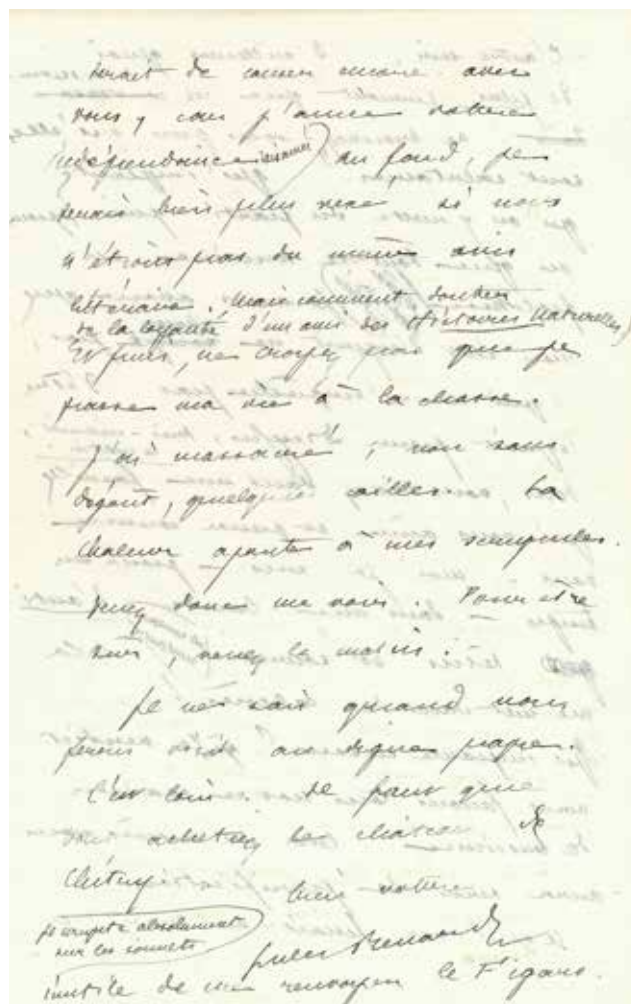 serait de causer encore avec
vous, car j'aime votre
indépendance. Au fond, je
serais bien plus vexé si nous
n'étions pas du même avis
littéraire. Mais comment douter
de la loyauté d'un ami des Histoires Naturelles
Et puis, ne croyez pas que je
passe ma vie à la chasse.
J'ai massacré, non sans
dégoût, quelques cailles. La
chaleur ajoute à mes scrupules.
Venez donc me voir. Pour être
sûr, venez le matin.
Je ne sais quand nous
ferons visite au digne pape.
C'est loin. Il faut que
achetiez le château de
Chitry
bien votre
Jules Renard
Je compte absolument
sur les sonnets
Inutile de me renvoyer le Figaro.